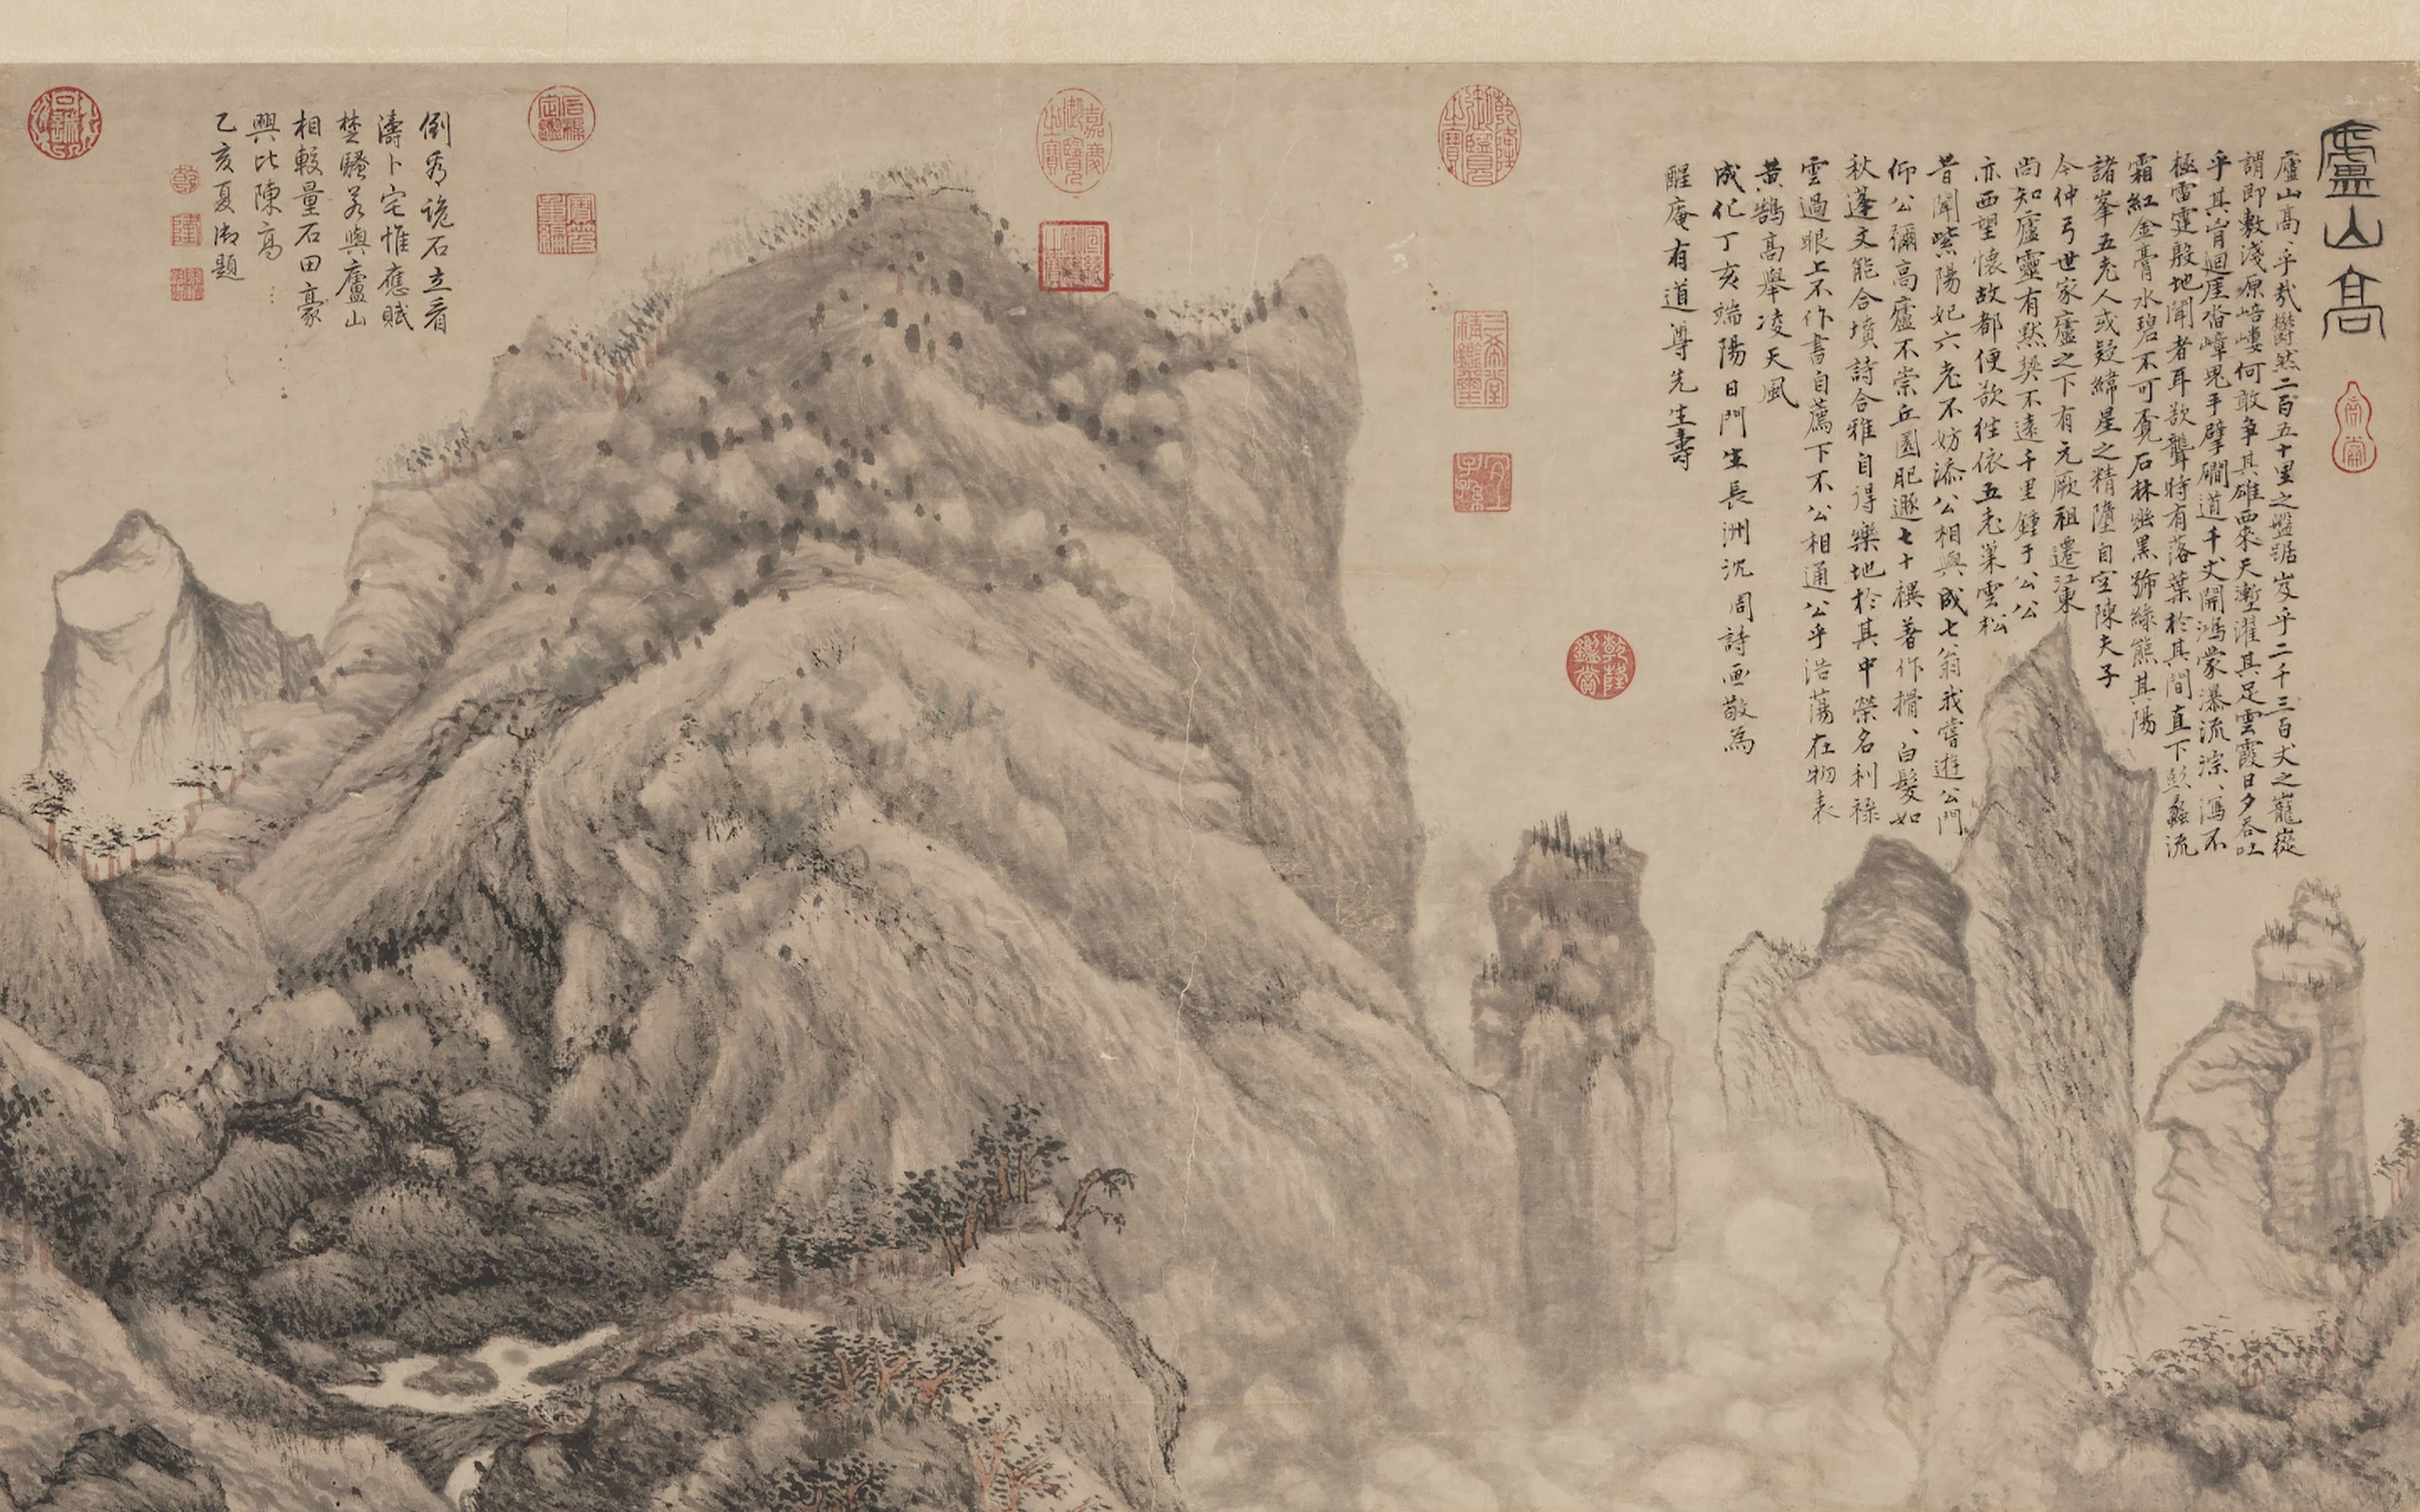 廬山高
廬山高、乎哉鬱然二百五十里之盤踞岌乎二千三百丈之巃嵸
謂即敷淺原㟝嶁何敢爭其雄西來天塹濯其足雲霞日夕吞吐
乎其胷迴厓沓嶂鬼手擘磵道千丈開鴻蒙瀑流淙、瀉不
極雷霆殷地聞者耳欲聾時有落葉於其間直下彭蠡流
霜紅金膏水碧不可覔石林幽黑號綠熊其陽
諸峯五老人或疑緯星之精墮自空陳夫子
今仲弓世家廬之下有元厥祖遷江東
尚知廬靈有默契不遠千里鍾于公公
亦西望懷故都便欲往依五老巢雲松
昔聞紫陽妃六老不妨添公相與成七翁我嘗遊公門
仰公彌高廬不崇丘園肥遯七十禩著作揹、白髮如
秋蓬文能合墳詩合雅自得樂地於其中榮名利祿
雲過眼上不作書自薦下不公相通公乎浩蕩在物表
黃鵠高舉凌天風
成化丁亥端陽日門生長洲沈周詩画敬為
醒庵有道尊先生壽
乾隆御覽之寶
三希堂精鑑璽
宜子孫
乾隆鑑賞
嘉慶御覽之寶
石渠定鑑
寶笈重編
倒秀詭石立看
濤卜宅惟應賦
埜騷若與廬山
相較量石田豪
興比陳高
乙亥夏御題
乾
隆